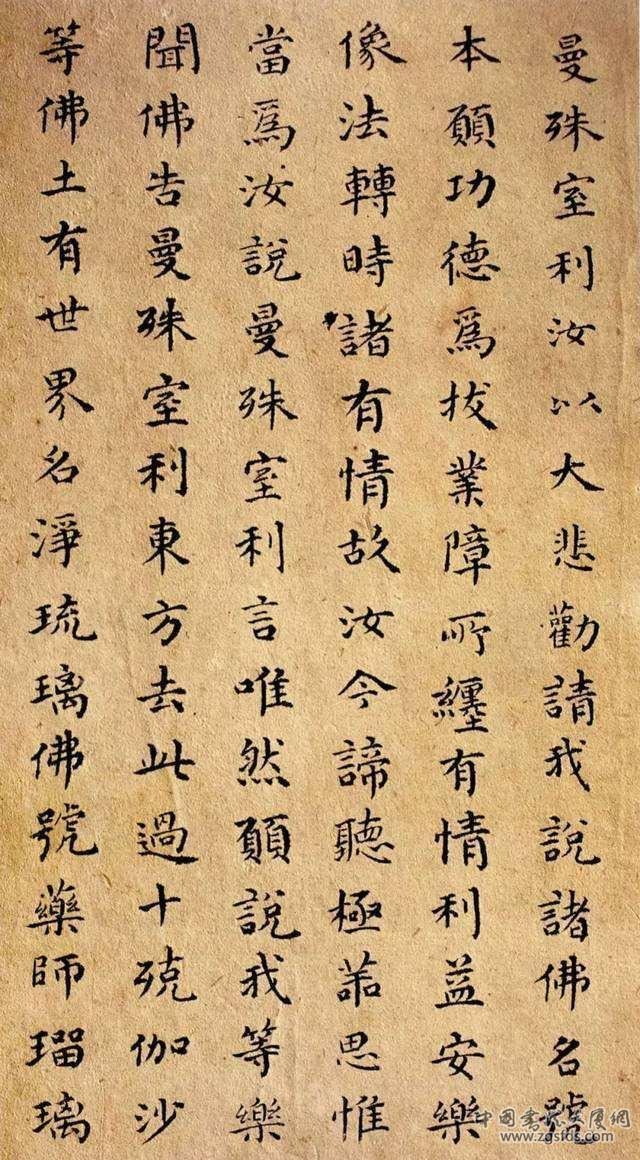 曼殊室利汝以大悲勸請我說諸佛名號
本願功德爲拔業障所纏有情利益安樂
像法轉時諸有情故汝今諦聽極善思惟
當爲汝說曼殊室利言唯然願說我等樂
聞佛告曼殊室利東方去此過十殑伽沙
等佛土有世界名淨琉璃佛號藥師瑠璃
中国书法发展网
www.zgsfds.com